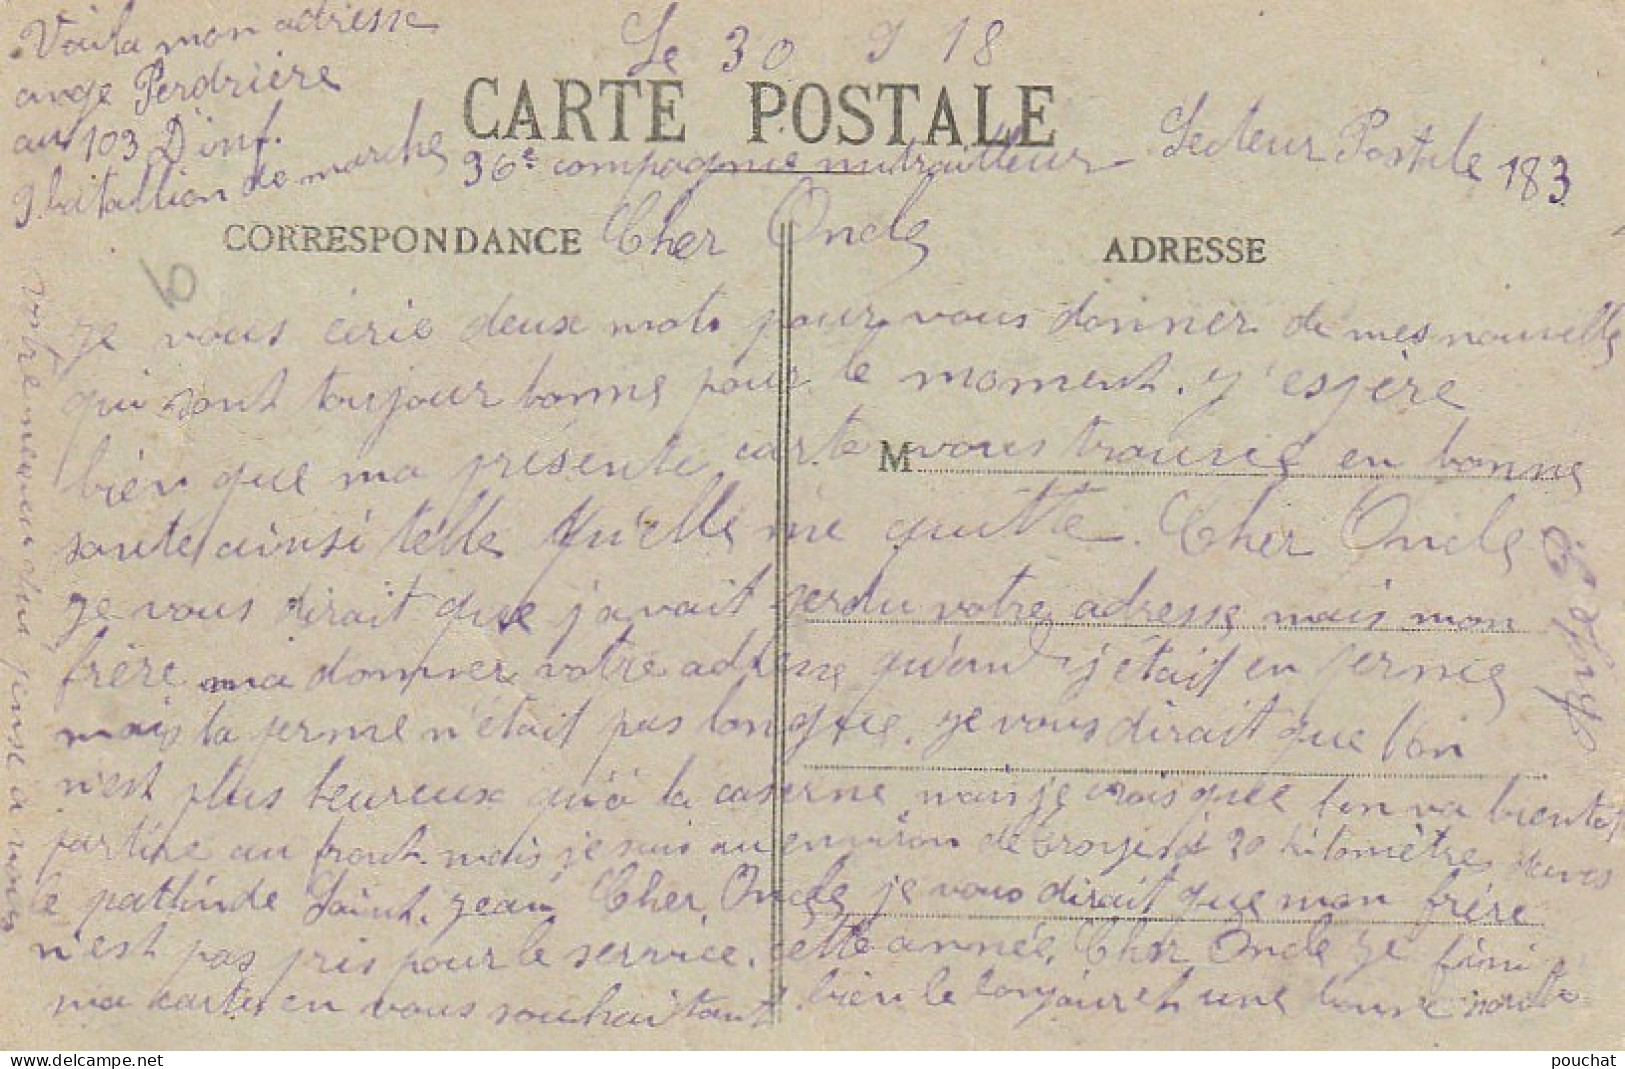 Voila mon adresse
ange Perdrière
au 103 D'inf.
9 bataillion de marche 36e compagnie mitrailleur Secteur Postale 183
Le 30 9 18
CARTE POSTALE
CORRESPONDANCE
ADRESSE
Cher Oncle
je vous écrie deux mots pour vous donner de mes nouvelle
qui sont toujour bonne pour le moment. j'espère
bien que ma présente carte vous trouve en bonne
M
sante ainsi telle qu'elle me quitte. Cher Oncle
je vous dirait que j'avait perdu votre adresse mais mon
frère ma donner votre adresse quand j'était en perme
mais la perme n'était pas longue. je vous dirait que l'on
n'est plus heureux qu'à la caserne mais je crois que l'on va bientot
partire au front. mais je suis au environ de troyes à 20 kilomètres
le patlinde Saint. jean Cher Oncle je vous dirait que mon frère
n'est pas pris pour le service. cette année. Cher Oncle je fini
ma carte en vous souhaitant bien le bonjour et une bonne
votre neveu qui pense a vous
pouchat